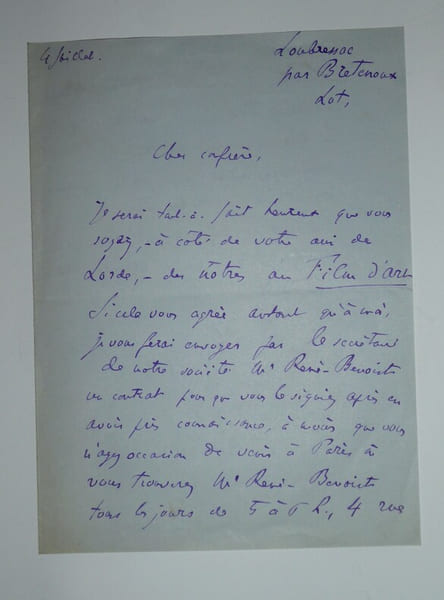 4 Juillet.
Loubressac
par Bretenoux
Lot,
Cher confrère,
Je serai tout-à-fait heureux que vous
soyez, - à côté de votre ami de
Lorde, - des nôtres au Film d'art
Si cela vous agrée autant qu'à moi,
je vous ferai envoyer par le secrétaire
de notre société Mr René-Benoist
un contrat pour que vous le signiez après en
avoir pris connaissance, à moins que vous
n'ayez occasion de venir à Paris à
vous trouverez Mr René-Benoist
tous les jours de 5 à 6 h., 4 rue